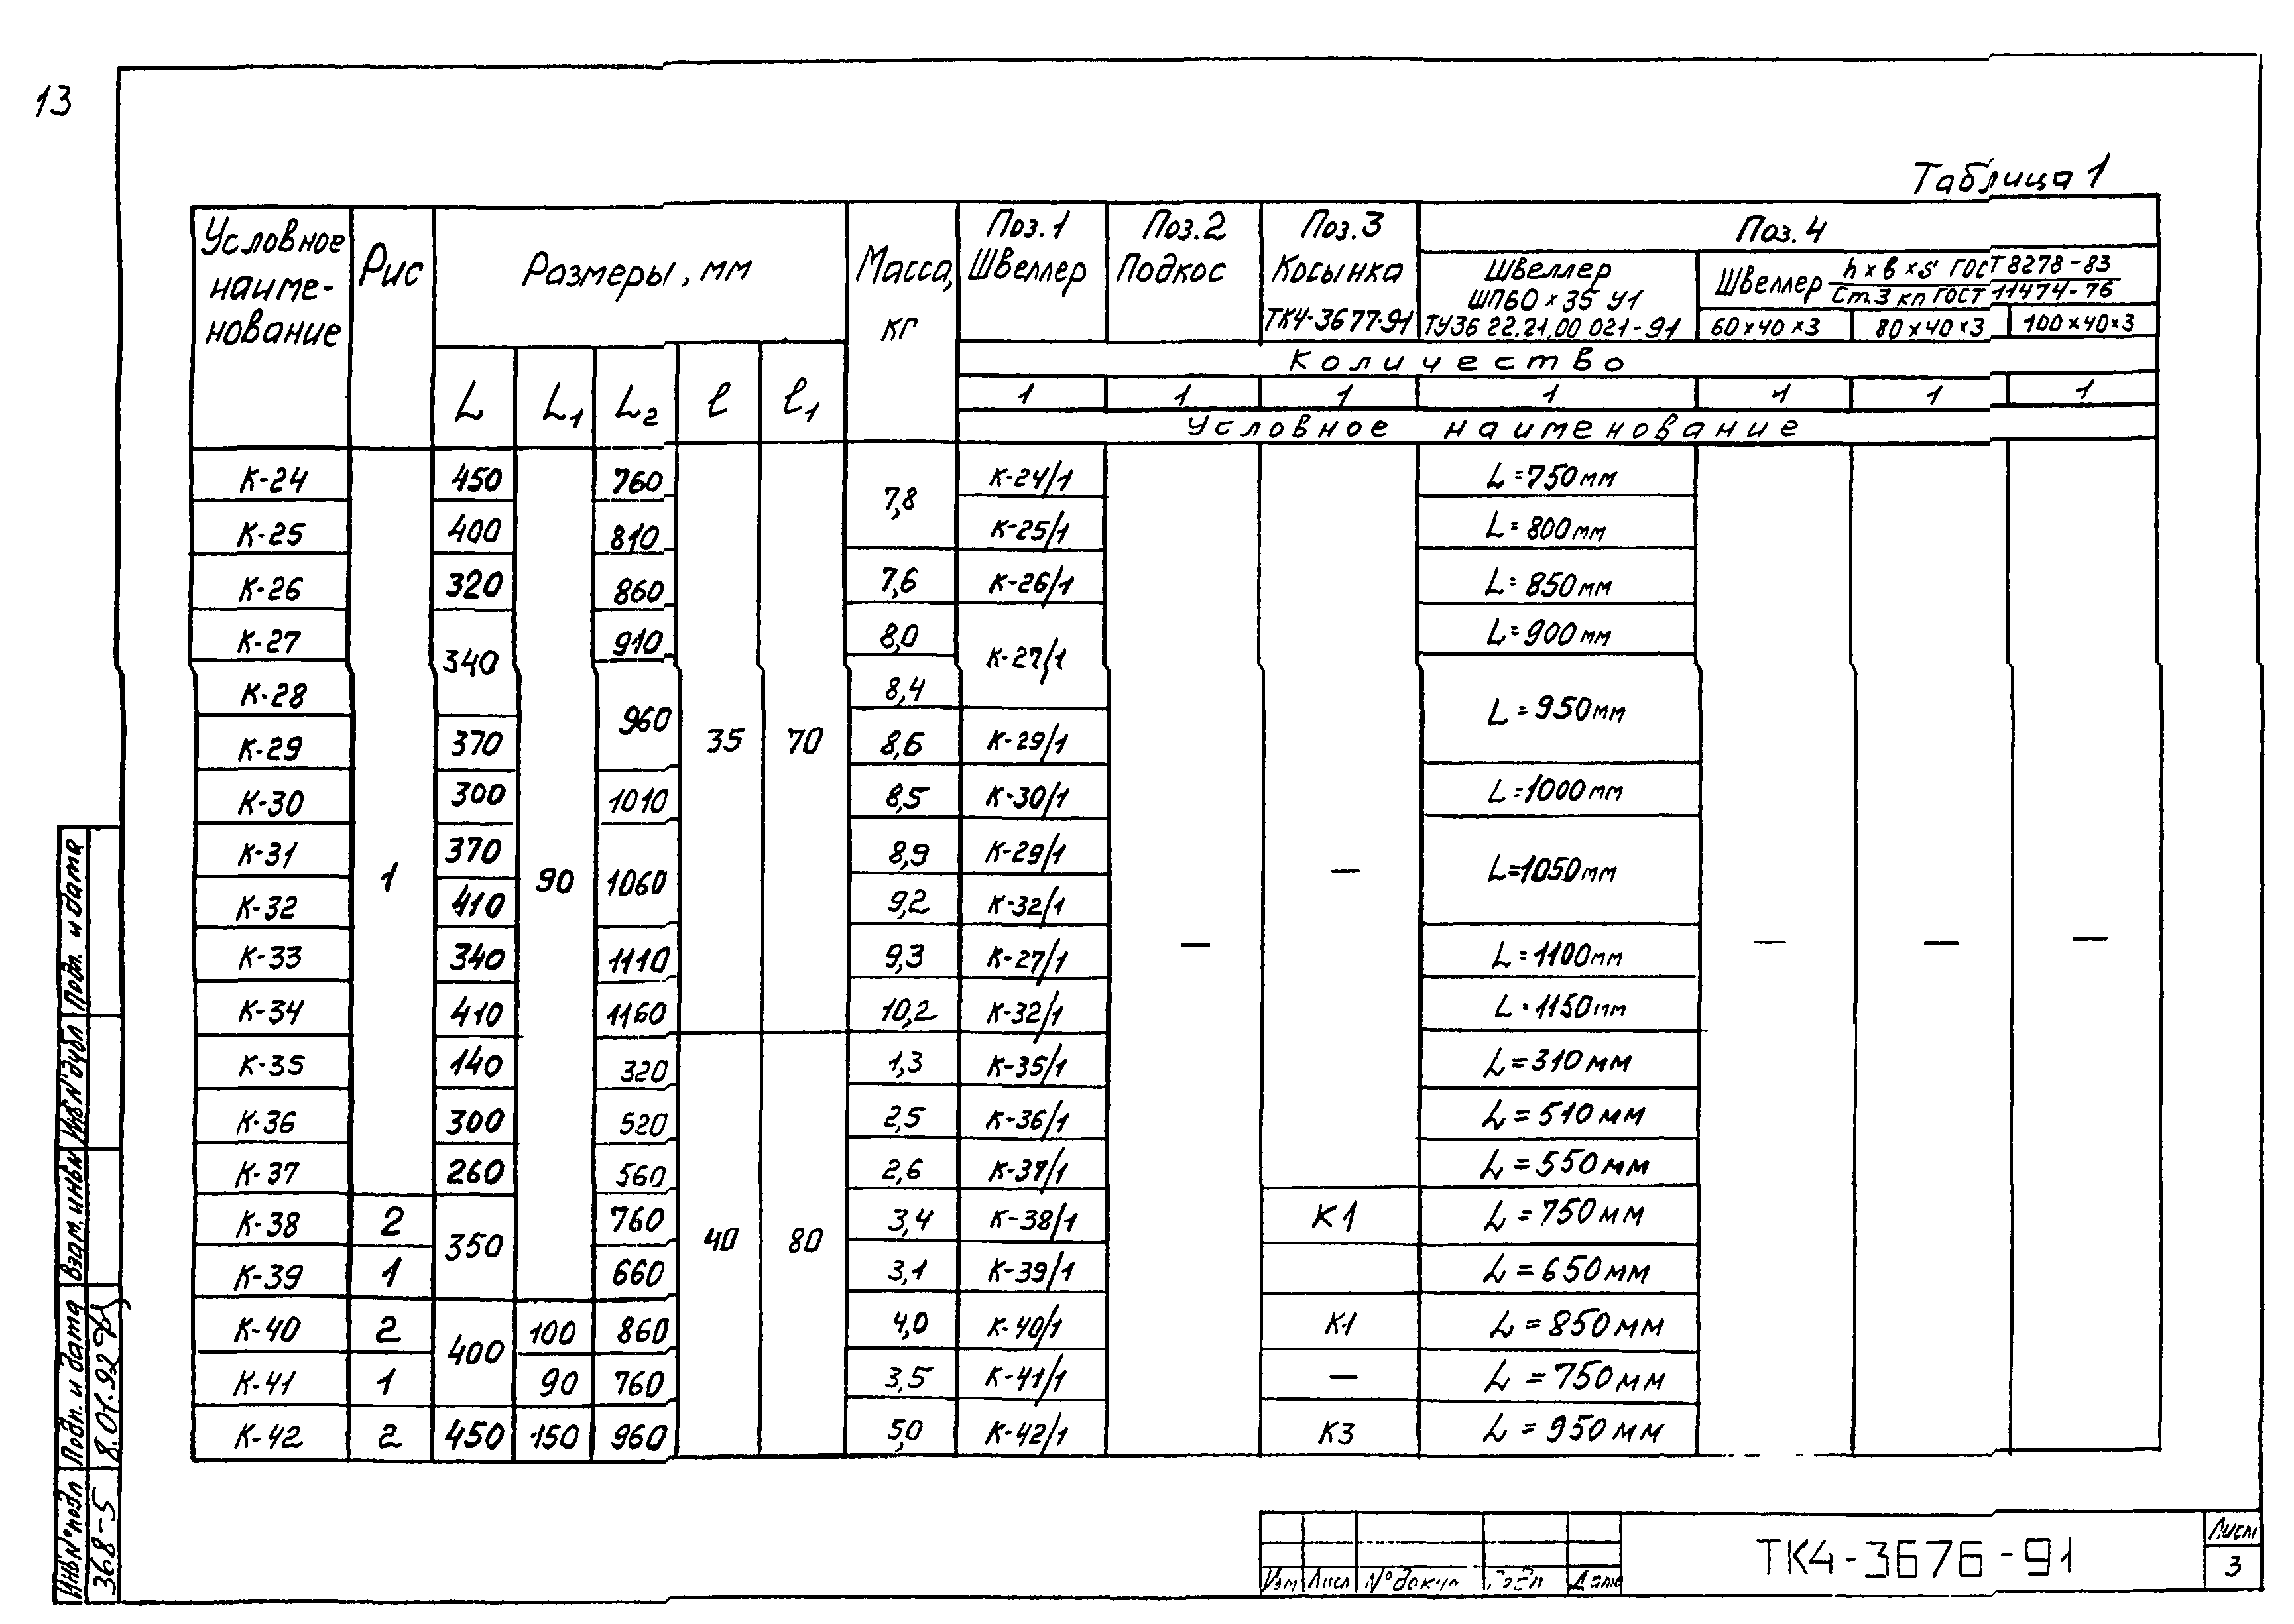 13
Таблица 1
Условное наиме-нование | Рис | Размеры, мм | Масса, кг | Поз.1 Швеллер | Поз.2 Подкос | Поз.3 Косынка ТК4-3677-91 | Поз.4
Швеллер ШП60×35 У1 ТУ36 22.21.00 021-91 | Швеллер h×в×s ГОСТ 8278-83 / Ст.3 кп ГОСТ 11474-76
60×40×3 | 80×40×3 | 100×40×3
L | L1 | L2 | ℓ | ℓ1
Количество
1 | 1 | 1 | 1 | 1 | 1 | 1
Условное наименование
К-24 | 1 | 450 | 90 | 760 | 35 | 70 | 7,8 | К-24/1 | — | — | L=750мм | — | — | —
К-25 | 400 | 810 | К-25/1 | L=800мм
К-26 | 320 | 860 | 7,6 | К-26/1 | L=850мм
К-27 | 340 | 910 | 8,0 | К-27/1 | L=900мм
К-28 | 960 | 8,4 | L=950мм
К-29 | 370 | 8,6 | К-29/1
К-30 | 300 | 1010 | 8,5 | К-30/1 | L=1000мм
К-31 | 370 | 1060 | 8,9 | К-29/1 | L=1050мм
К-32 | 410 | 9,2 | К-32/1
К-33 | 340 | 1110 | 9,3 | К-27/1 | L=1100мм
К-34 | 410 | 1160 | 10,2 | К-32/1 | L=1150мм
К-35 | 140 | 320 | 40 | 80 | 1,3 | К-35/1 | L=310мм
К-36 | 300 | 520 | 2,5 | К-36/1 | L=510мм
К-37 | 260 | 560 | 2,6 | К-37/1 | L=550мм
К-38 | 2 | 350 | 760 | 3,4 | К-38/1 | К1 | L=750мм
К-39 | 1 | 660 | 3,1 | К-39/1 | L=650мм
К-40 | 2 | 400 | 100 | 860 | 4,0 | К-40/1 | К1 | L=850мм
К-41 | 1 | 90 | 760 | 3,5 | К-41/1 | — | L=750мм
К-42 | 2 | 450 | 150 | 960 | 5,0 | К-42/1 | К3 | L=950мм
Подп. и дата
Инв.№ дубл
Взам. инв.№
Подп. и дата
8.01.92
Инв.№ подл
368-5
Изм Лист №докум Подп Дата
ТК4-3676-91
Лист
3